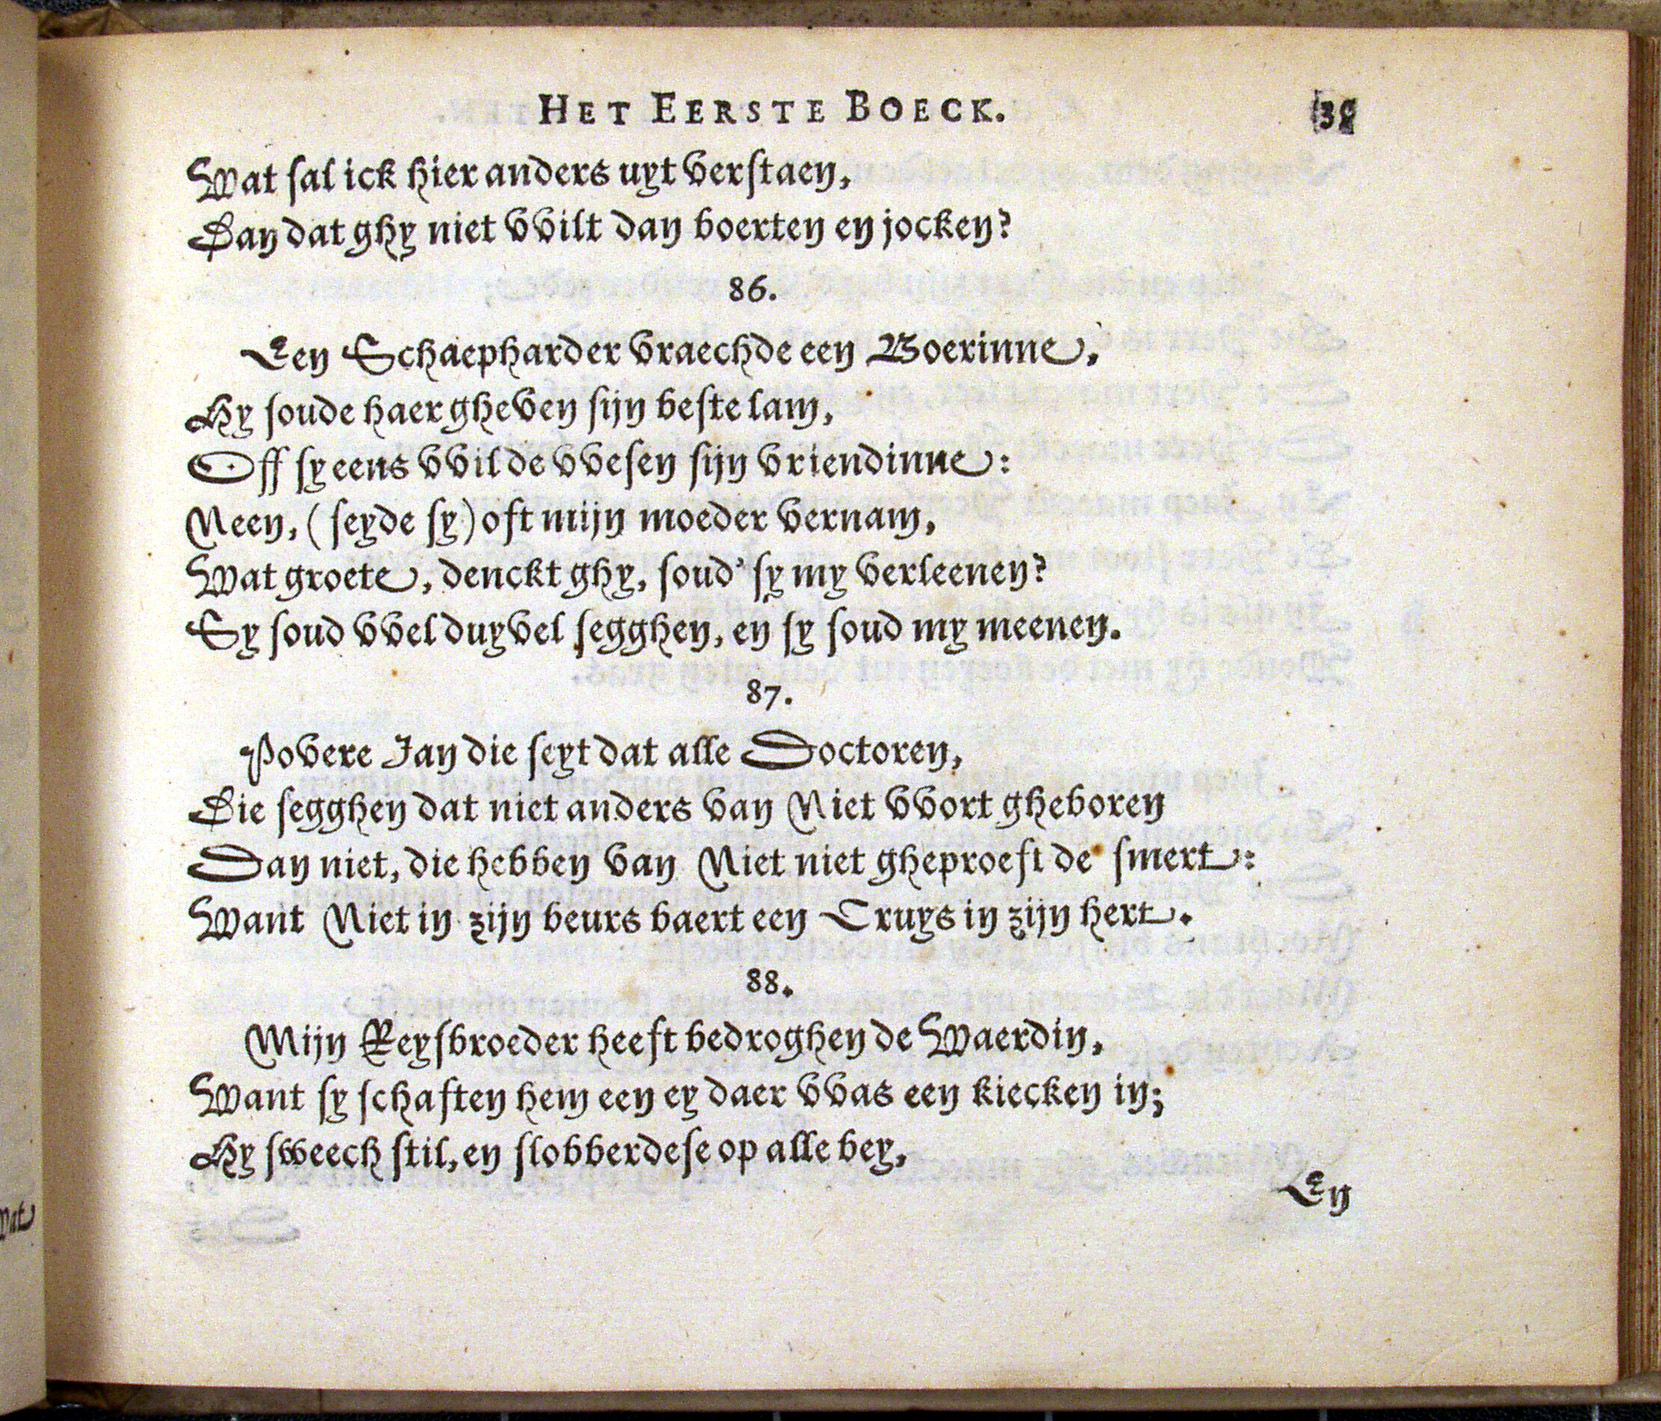 HET EERSTE BOECK.
Wat sal ick hier anders uyt verstaen,
Dan dat ghy niet vvilt dan boerten en jocken?
86.
Een Schaepharder vraechde een Boerinne,
Hy soude haer gheven sijn beste lam,
Off sy eens vvilde vvesen sijn vriendinne:
Neen, (seyde sy) oft mijn moeder vernam,
Wat groete, denckt ghy, soud' sy my verleenen?
Sy soud vvel duyvel segghen, en sy soud my meenen.
87.
Povere Jan die seyt dat alle Doctoren,
Die segghen dat niet anders van Niet vvort gheboren
Dan niet, die hebben van Niet niet gheproeft de smert:
Want Niet in zijn beurs baert een Cruys in zijn hert.
88.
Mijn Reysbroeder heeft bedroghen de Waerdin,
Want sy schaften hem een ey daer vvas een kiecken in;
Hy sweech stil, en slobberdese op alle bey,
En